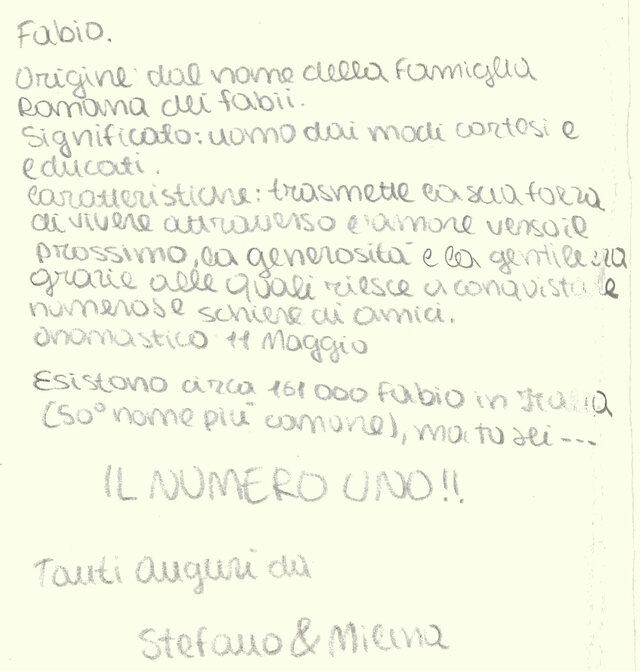 Fabio.
Origine: dal nome della famiglia
Romana dei fabii.
Significato: uomo dai modi cortesi e
educati.
Caratteristiche: trasmette la sua forza
di vivere attraverso l'amore verso il
prossimo, la generosità e la gentilezza
grazie alle quali riesce a conquistare
numerose schiere di amici.
Onomastico 11 Maggio
Esistono circa 161 000 Fabio in Italia
(50° nome più comune), ma tu sei ---
IL NUMERO UNO!!
Tanti auguri da
Stefano & Milena